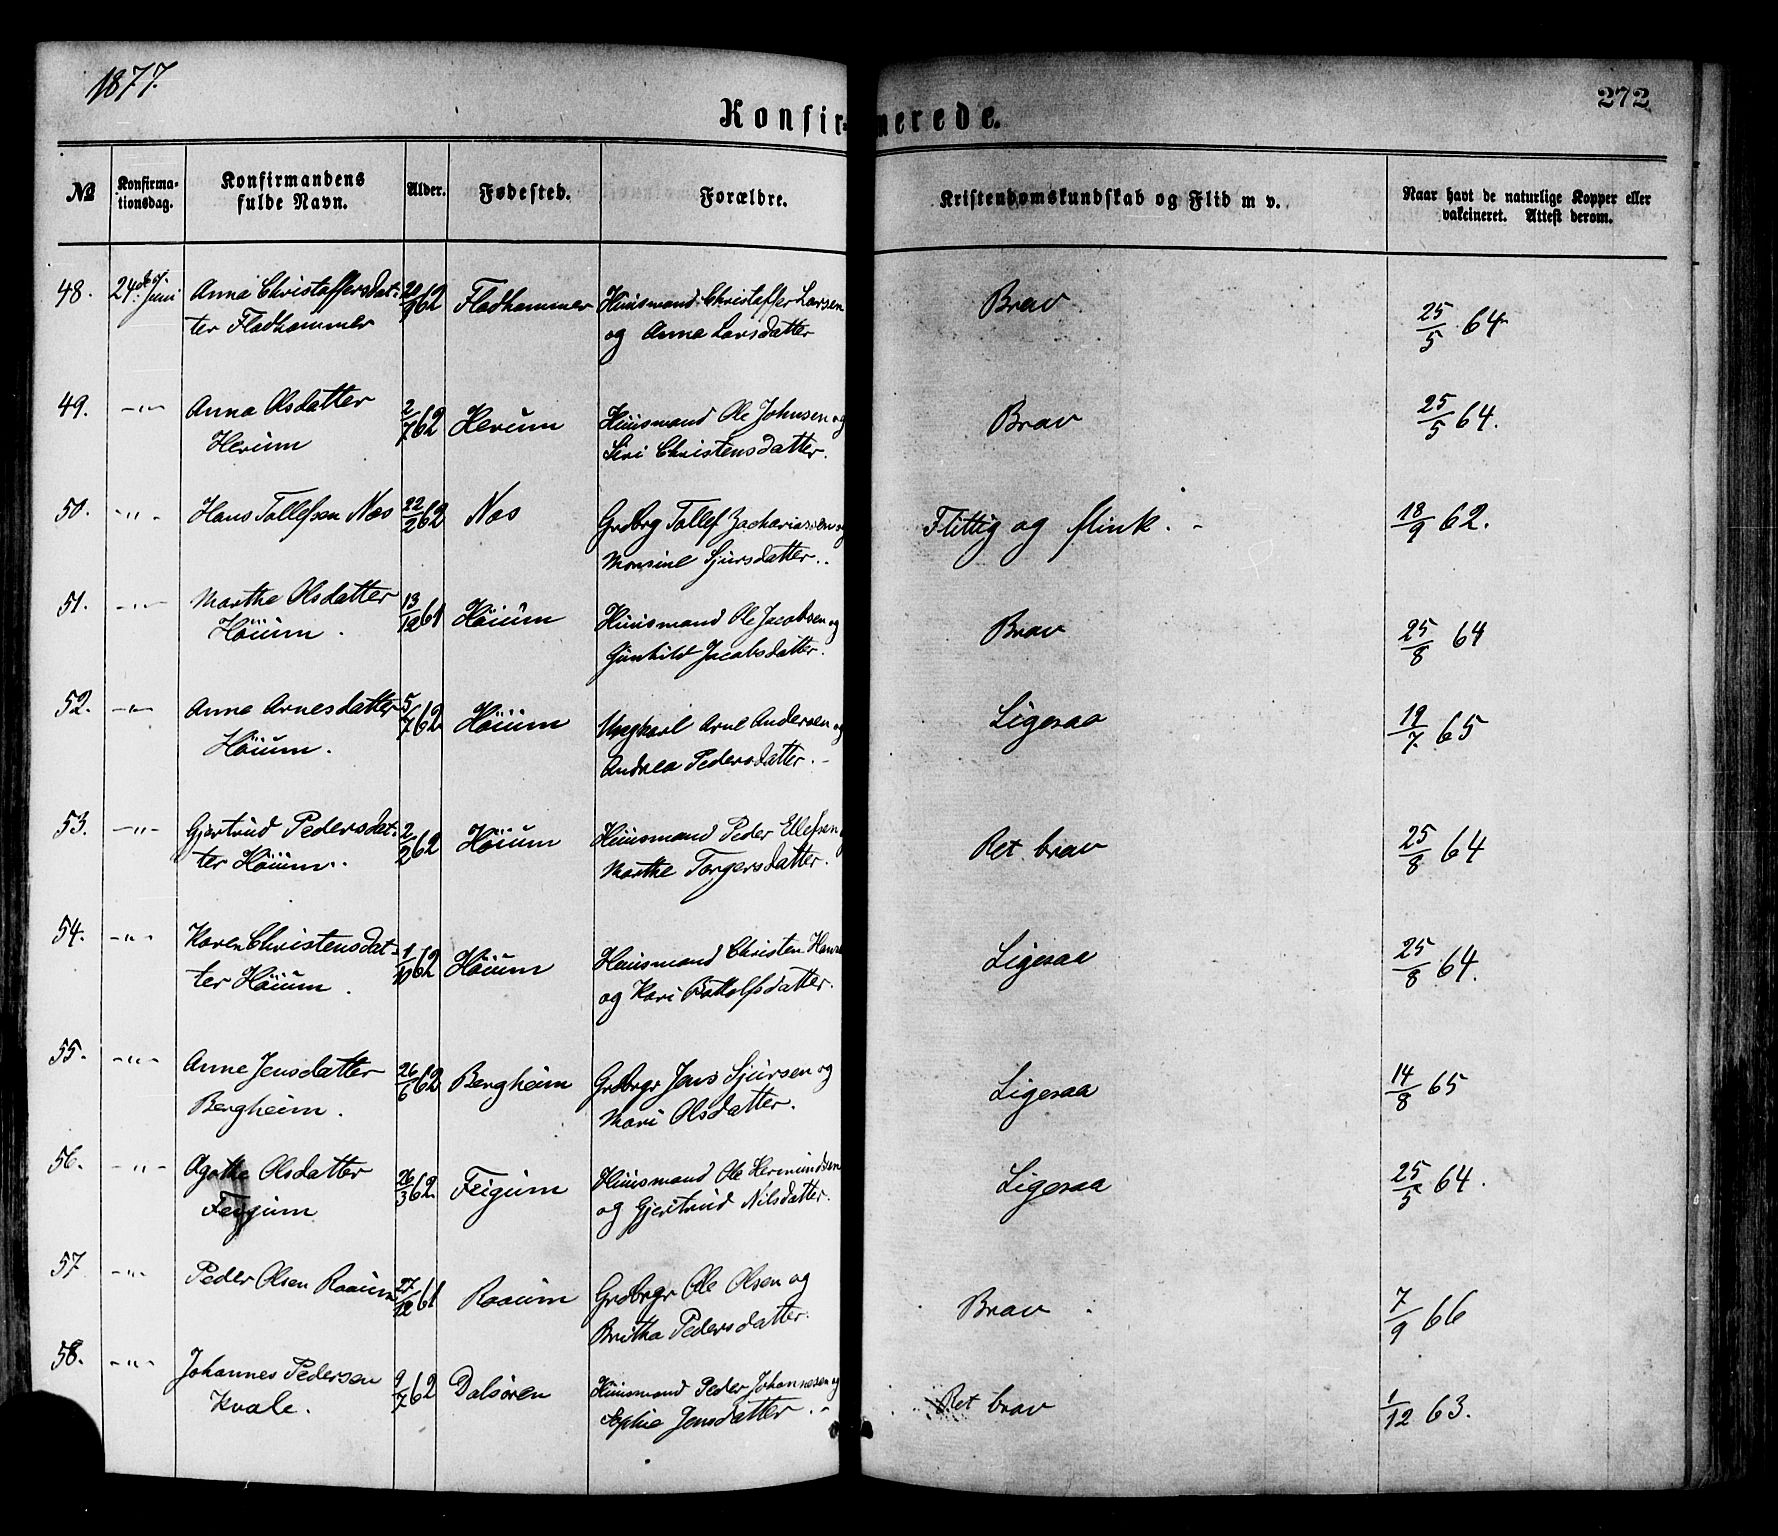 1877.
272
Konfirmerede.
№
Konfirma-
tionsdag.
Konfirmandens
fulde Navn.
Alder.
Fødested.
Forældre.
Kristendomskundskab og Flid m v.
Naar havt de naturlige Kopper eller
vakcineret. Attest derom.
48. 24de Juni Anna Christoffersdat- 20/9 62 Fladhammer Huusmand Christoffer Larsen Brav 25/5 64
ter Fladhammer og Anna Larsdatter
49. -"- Anna Olsdatter 2/7 62 Herum Huusmand Ole Johnsen og Brav 25/5 64.
Herum Siri Christensdatter.
50. -"- Hans Tollefsen Næs 22/2 62 Næs Grdbrg Tollef Zachariassen og Flittig og flink. 18/9 62.
Monsine Sjursdatter.
51. -"- Marthe Olsdatter 13/12 61 Høium Huusmand Ole Jacobsen og Brav 25/8 64
Høium. Gunhild Jacobsdatter.
52. -"- Anna Arnesdatter 5/7 62 Høium Ungkarl Arne Andersen og Ligesaa 19/7. 65
Høium. Andrea Pedersdatter.
53. -"- Gjertrud Pedersdat- 2/2 62 Høium Huusmand Peder Ellefsen Ret brav 25/8 64
ter Høium. Marthe Torgersdatter.
54. -"- Karen Christensdat- 1/10 62 Høium Huusmand Christen Ligesaa 25/8 64.
ter Høium. og Kari Botolfsdatter.
55. -"- Anne Jensdatter 26/6 62 Bergheim Grdbrgr Jens Sjursen og Ligesaa 14/8 65
Bergheim. Mari Olsdatter.
56. -"- Agathe Olsdatter 26/3 62 Feigum Huusmand Ole Hermundsen Ligesaa 25/5 64.
Feigum og Gjertrud Nilsdatter.
57 -"- Peder Olsen Raaum 27/12 61 Raaum Grdbrgr Ole Olsen og Brav 7/9 66
Britha Pedersdatter.
58. -"- Johannes Pedersen 9/7 62 Dalsøren Huusmand Peder Johannesen og Ret brav 1/12 63.
Kvale. Sophie Jensdatter.